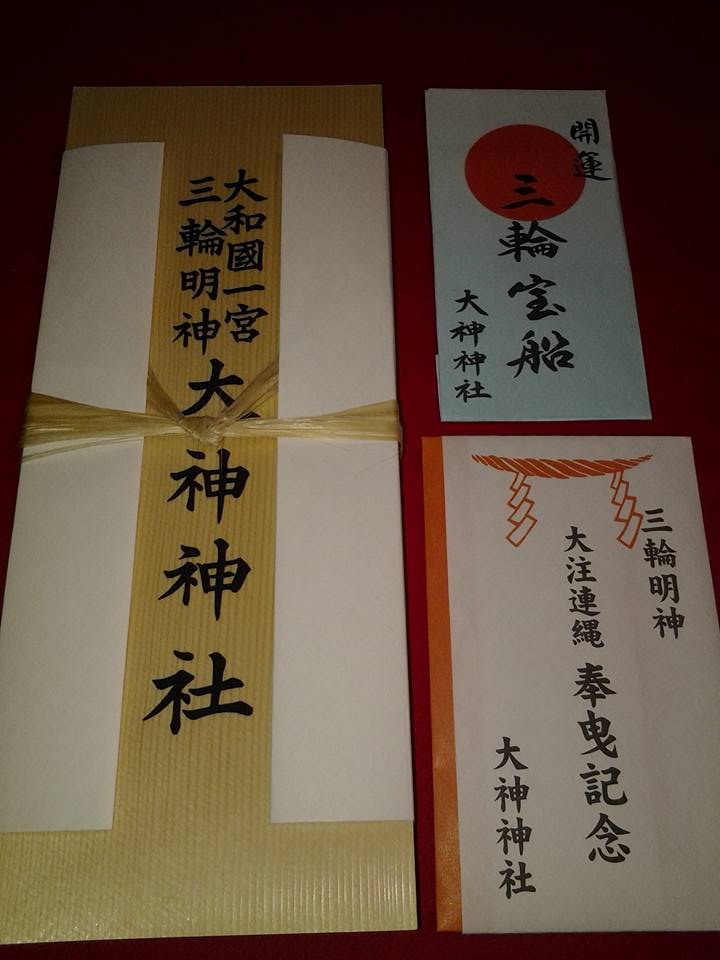 大和國一宮
三輪明神
大神神社
開運
三輪宝船
大神神社
三輪明神
大注連縄 奉曳記念
大神神社